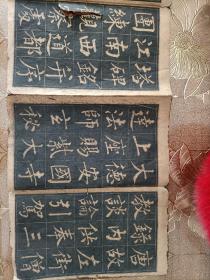 唐故左街僧
錄內供奉三
教談論引駕
大德安國寺
上座賜紫大
達法師玄秘
塔碑銘并序
江南西道都
團練觀察處